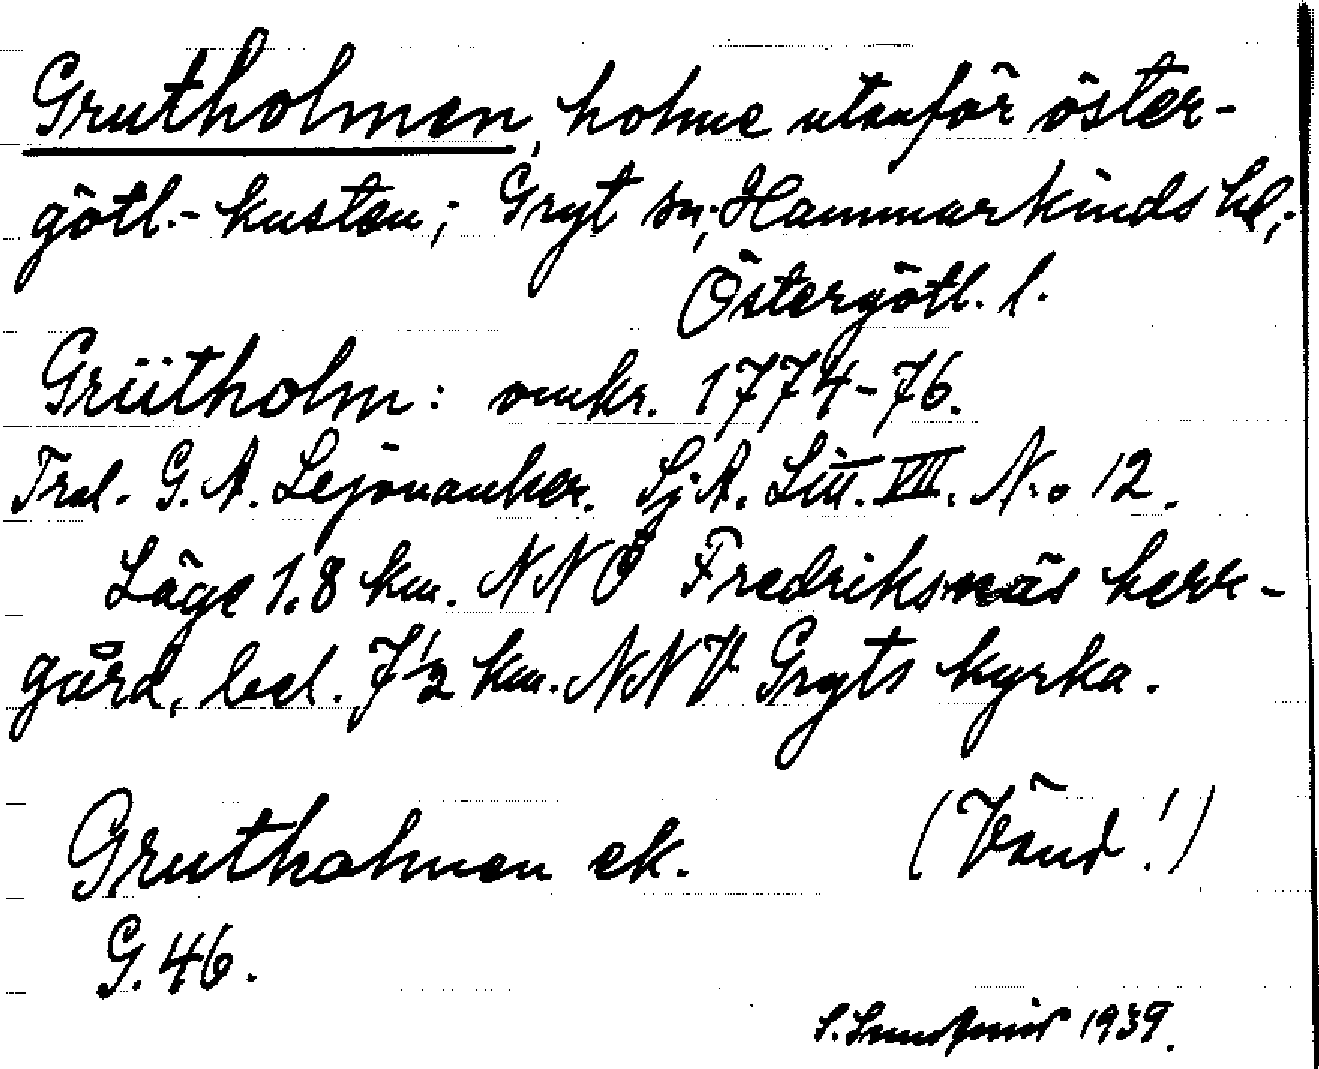 Grutholmen, holme utanför öster-
götl.-kusten; Gryt sn; Hammarkinds hd;
Östergötl. l.
Grütholm: omkr. 1774-76.
Trol. G. A. Lejonanker. Sj.A. Litt. VII. No 12.
Läge 1.8 km. NNÖ Fredriksnäs herr-
gård, bel. 7 1/2 km. NNV Gryts kyrka.
Grutholmen ek. (Vänd!)
G. 46.
1939.